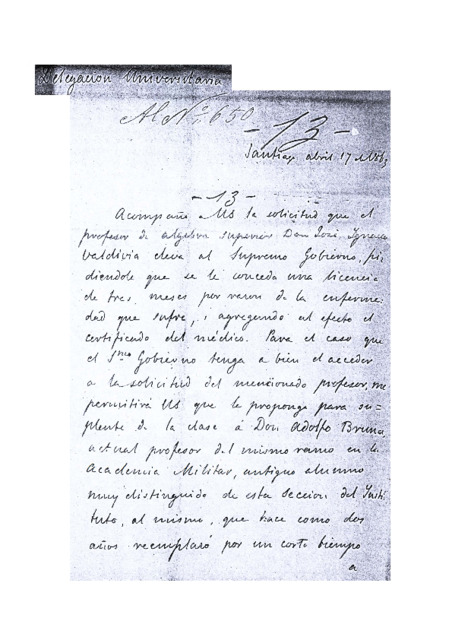 Delegacion Universitaria
Al Nº 650
- 13 -
Santiago, abril 17 de 1863
- 13 -
Acompaño a US la solicitud que el
profesor de algebra superior Don José Ignacio
Valdivia eleva al Supremo Gobierno, pi
diendole que se le conceda una licencia
de tres meses por razon de la enferme
dad que sufre, i agregando al efecto el
certificado del médico. Para el caso que
el Smo Gobierno tenga a bien el acceder
a la solicitud del mencionado profesor, me
permitirá US que le proponga para su-
plente de la clase á Don Adolfo Bruna,
actual profesor del mismo ramo en la
Academia Militar, antiguo alumno
muy distinguido de esta Seccion del Insti
tuto, al mismo, que hace como dos
años reemplazó por un corto tiempo
a